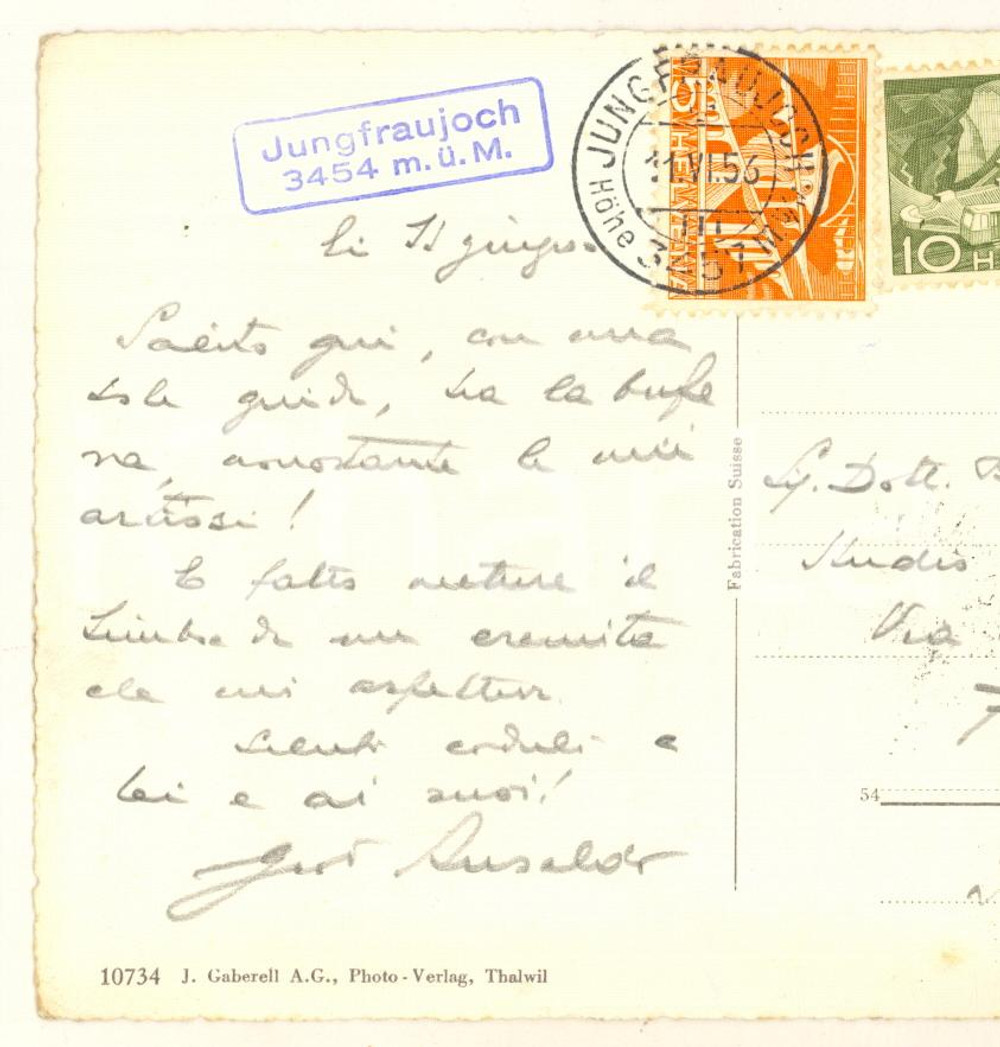 Jungfraujoch
3454 m.ü.M.
JUNGFRAUJOCH
11.VI.56
Höhe 3457 m
HELVETIA
5
10 H
li 11 giugno
Salito qui, con una
sola guida, tra la bufe
ra, nonostante le mie
artrosi!
E fatto mettere il
di un eremita
che mi aspettava.
Saluti cordiali a
Lei e ai suoi!
Ansaldo
Fabrication Suisse
Sig. Dott.
Studio
Via
54
10734 J. Gaberell A.G., Photo-Verlag, Thalwil